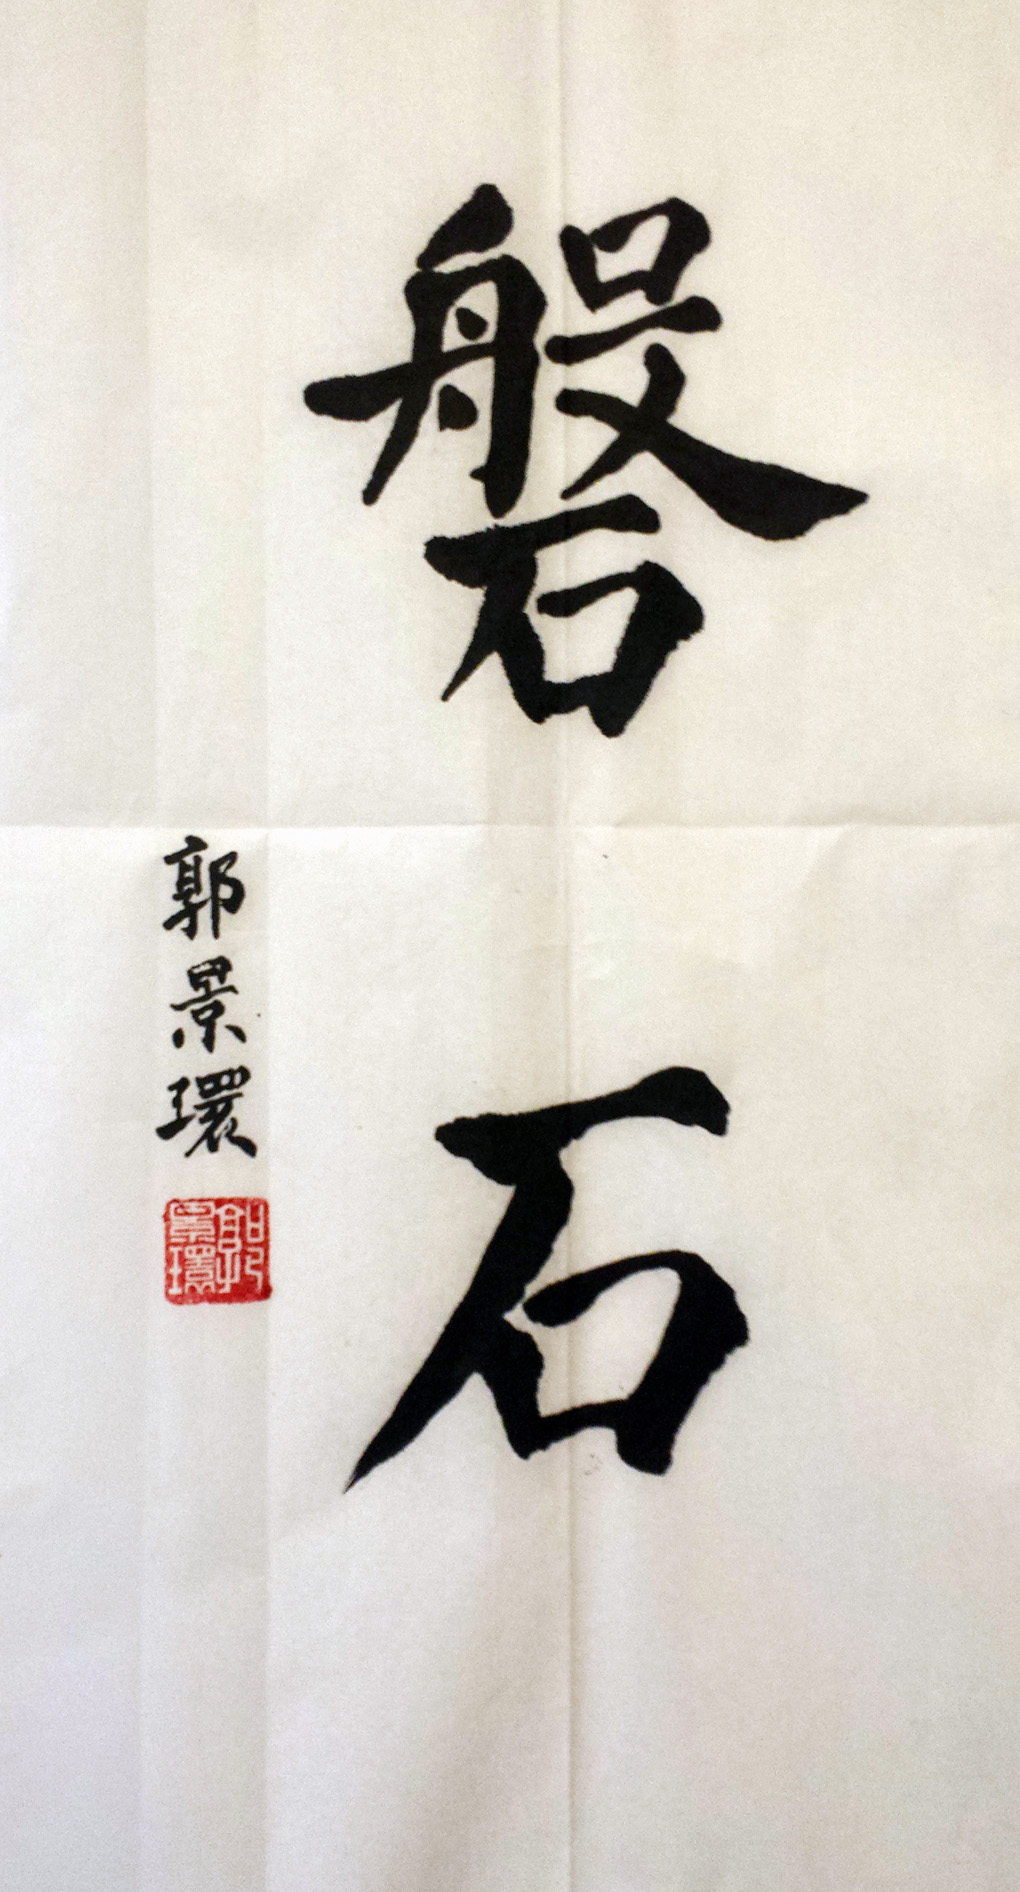 磐石
郭景環
郭景環